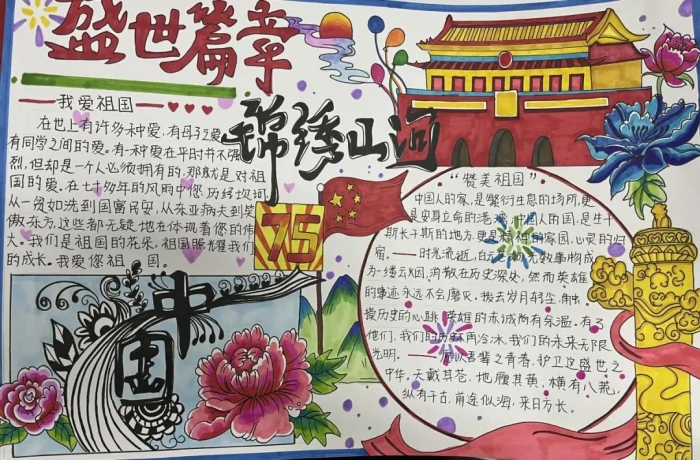 盛世篇章
我爱祖国
在世上有许多种爱,有母子之爱,
有同学之间的爱。有一种爱在平时并不强
烈,但却是一个人必须拥有的,那就是对祖
国的爱。在七十多年的风雨中您历经坎坷
从一贫如洗到国富民安,从东亚病夫到笑
傲东方,这些都无疑地在体现着您的伟
大。我们是祖国的花朵,祖国照耀我们
的成长。我爱您祖国。
锦绣山河
75
中国
“赞美祖国”
中国人的家,是繁衍生息的场所,更
是安身立命的港湾,中国人的国,是生于
斯长于斯的地方,更是精神的家园,心灵的归
宿。——时光流逝,
为一缕云烟,消散在历史深处,然而英雄
的事迹永远不会磨灭。拂去岁月轻尘,触
摸历史的心跳,英雄的赤诚所有永温。有了
他们,我们的历史不再冷冰,我们的未来无限
光明。——愿以吾辈之青春,护卫这盛世之
中华,天戴其苍,地履其黄,横有八荒,
纵有千古,前途似海,来日方长。